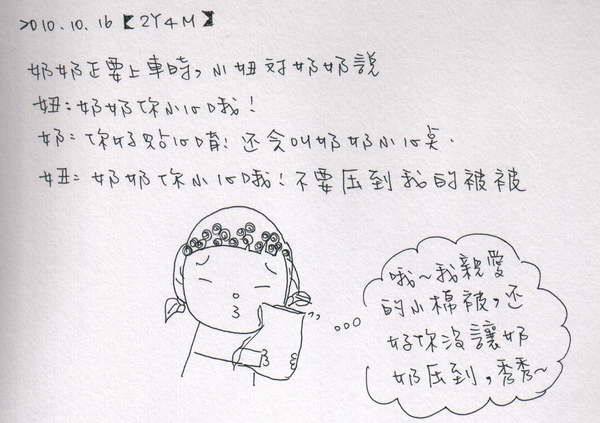 2010.10.16【2Y4M】
奶奶正要上車時,小妞对奶奶說
妞:奶奶你小心哦!
奶:你好貼心唷!还会叫奶奶小心吴.
妞:奶奶你小心哦!不要压到我的被被
哦~我親愛
的小棉被,还
好你没讓奶
奶压到,秀秀~